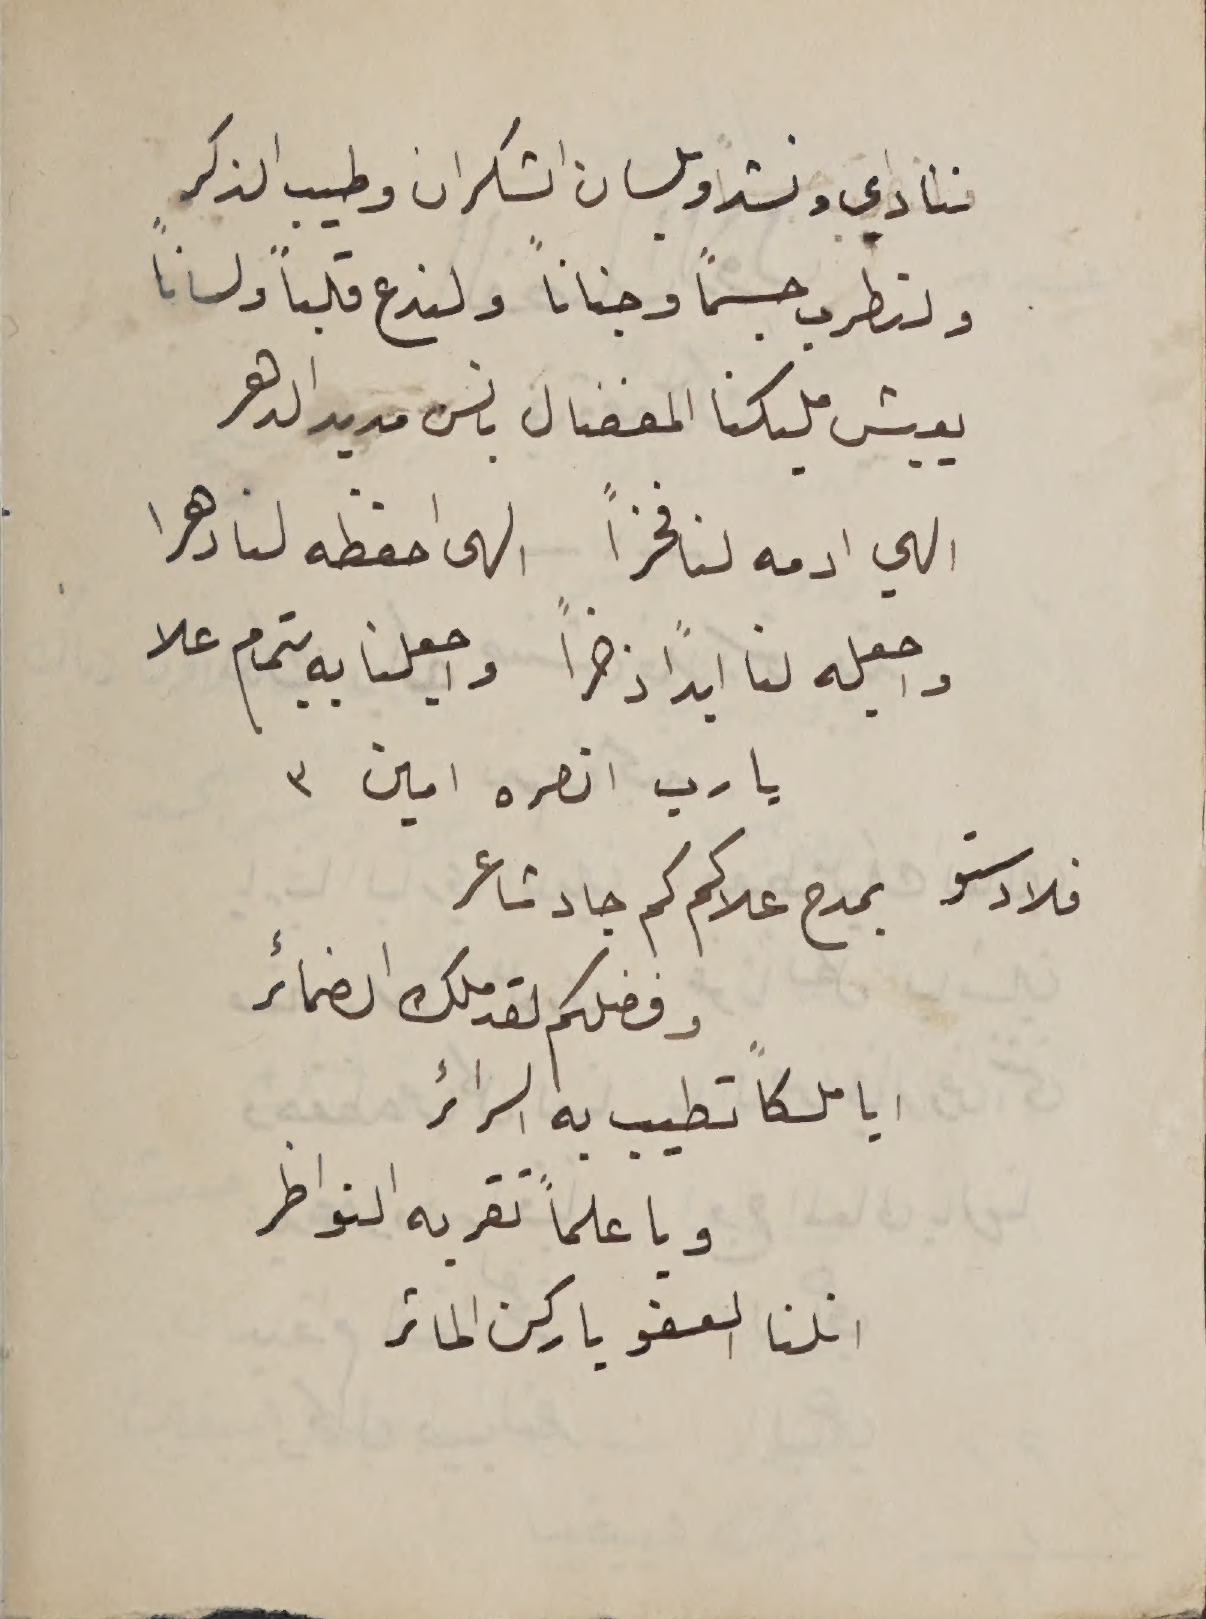 فننادي ونشدا وبلسان الشكران وطيب الذكر
ولنطرب جسمًا وجنانًا ولندع قلبًا ولسانًا
يعيش مليكنا المفضال بانس مديد الدهر
الهي ادمه لنا فخرًا الهي احفظه لنا دهرا
واجعله لنا ابدًا ذخرًا واجعلنا به بتمام علا
يا رب انصره امين ٣
فلادستو بمدح علاكم كم جاد شاعر
وفضلكم لقد ملك الضمائر
ايا ملكًا تطيب به السرائر
ويا علمًا تقر به النواظر
انلنا العفو يا ركن الماثر